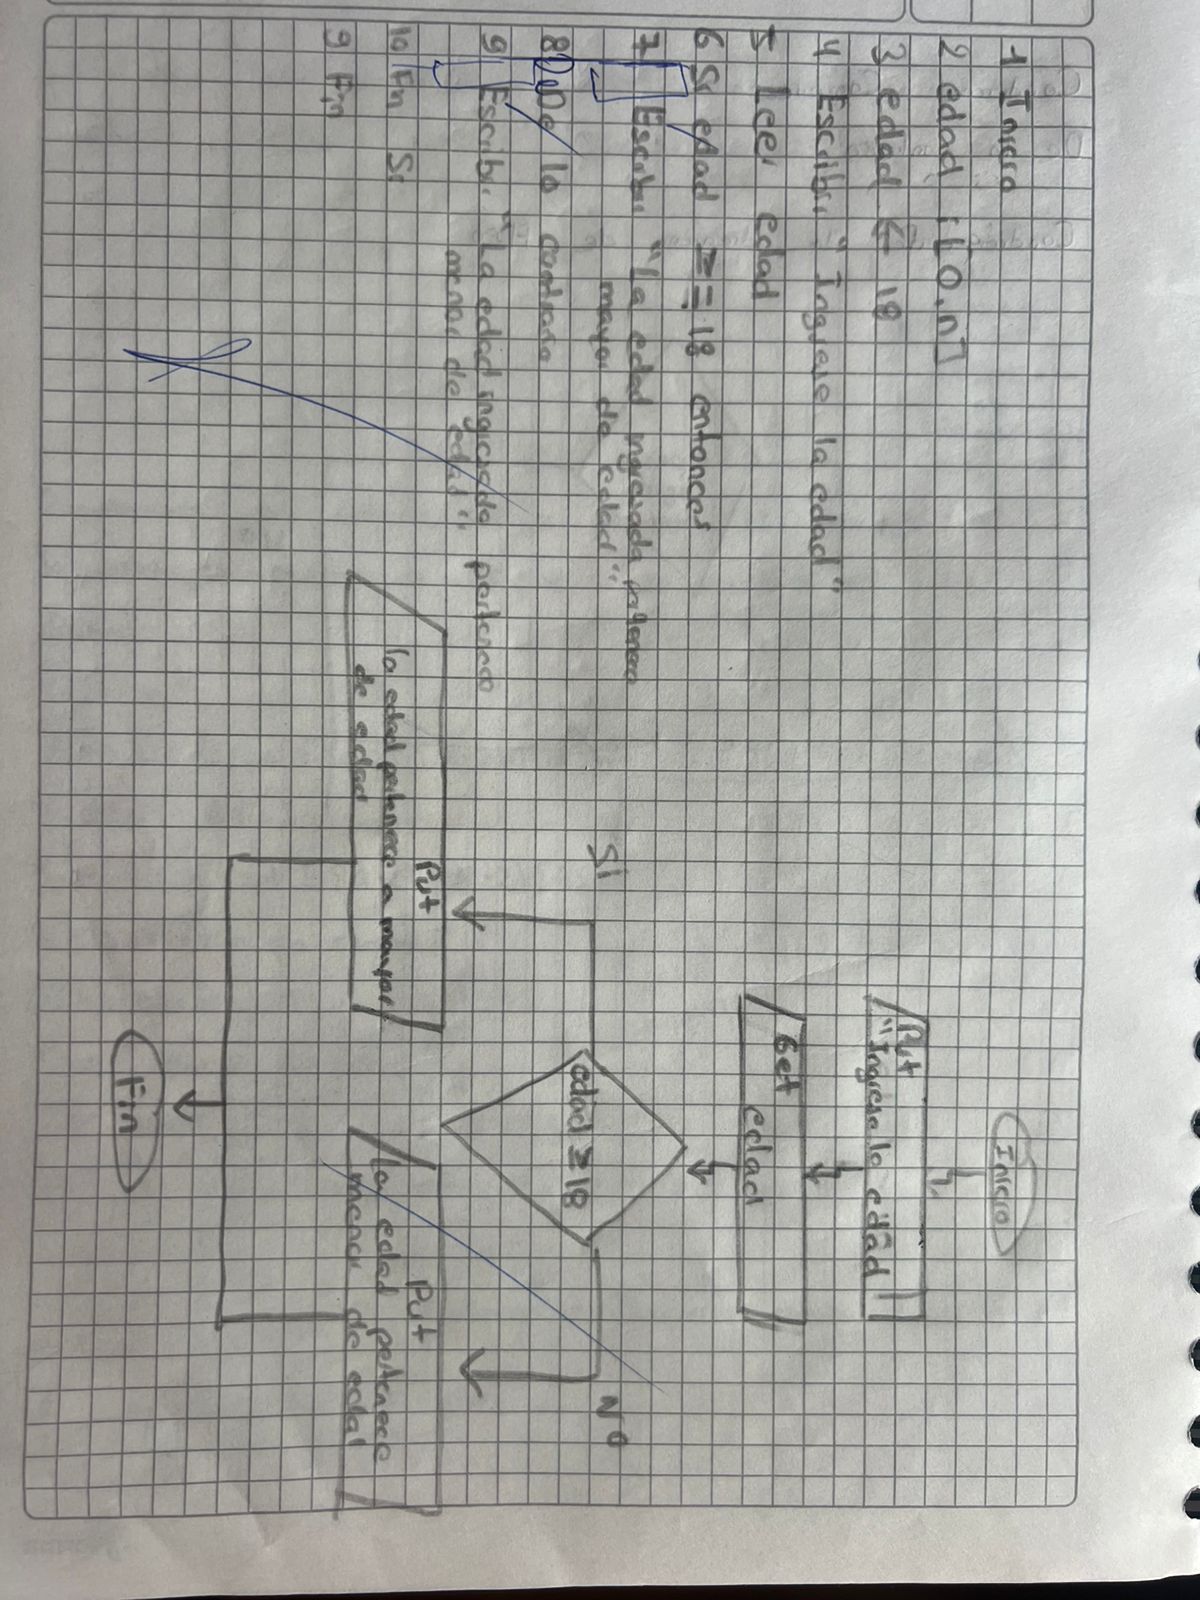 1 Inicio
2 edad : [0,n]
3 edad ← 18
4 Escribir "Ingrese la edad"
5 Leer edad
6 Si edad >= 18 entonces
7 Escribir "La edad ingresada pertenece
mayor de edad"
8 De lo contrario
9 Escribir "La edad ingresada pertenece
menor de edad"
10 Fin Si
9 Fin
Inicio
Put
"Ingresa la edad"
Get
edad
edad ≥ 18
Si
No
Put
la edad pertenece a mayor
de edad
Put
la edad pertenece
menor de edad
Fin